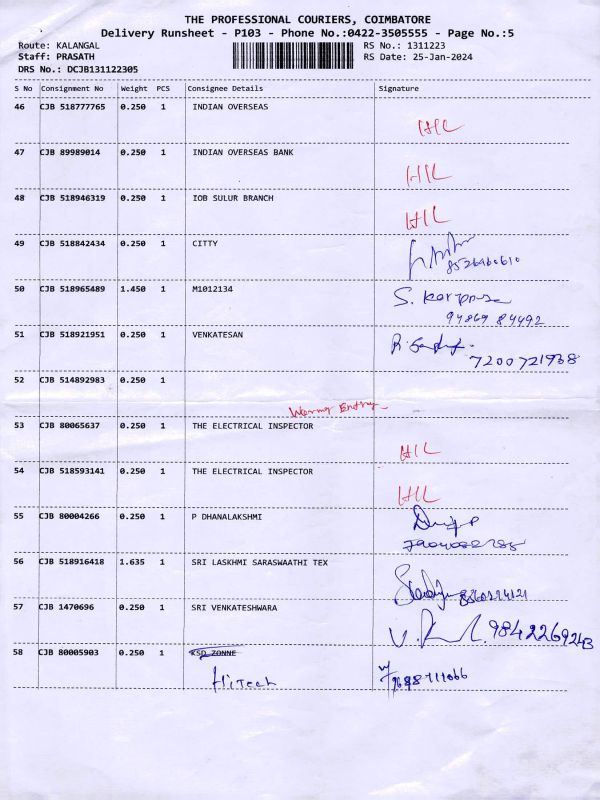 THE PROFESSIONAL COURIERS, COIMBATORE
Delivery Runsheet - P103 - Phone No.:0422-3505555 - Page No.:5
Route: KALANGAL RS No.: 1311223
Staff: PRASATH RS Date: 25-Jan-2024
DRS No.: DCJB131122305
S No Consignment No Weight PCS Consignee Details Signature
46 CJB 518777765 0.250 1 INDIAN OVERSEAS
HIL
47 CJB 89989014 0.250 1 INDIAN OVERSEAS BANK
HIL
48 CJB 518946319 0.250 1 IOB SULUR BRANCH
HIL
49 CJB 518842434 0.250 1 CITTY
50 CJB 518965489 1.450 1 M1012134
S.
94869 84492
51 CJB 518921951 0.250 1 VENKATESAN
R.
7200721938
52 CJB 514892983 0.250 1
Worng Entry
53 CJB 80065637 0.250 1 THE ELECTRICAL INSPECTOR
HIL
54 CJB 518593141 0.250 1 THE ELECTRICAL INSPECTOR
HIL
55 CJB 80004266 0.250 1 P DHANALAKSHMI
56 CJB 518916418 1.635 1 SRI LASKHMI SARASWAATHI TEX
57 CJB 1470696 0.250 1 SRI VENKATESHWARA
58 CJB 80005903 0.250 1 KSD ZONNE
HiTech